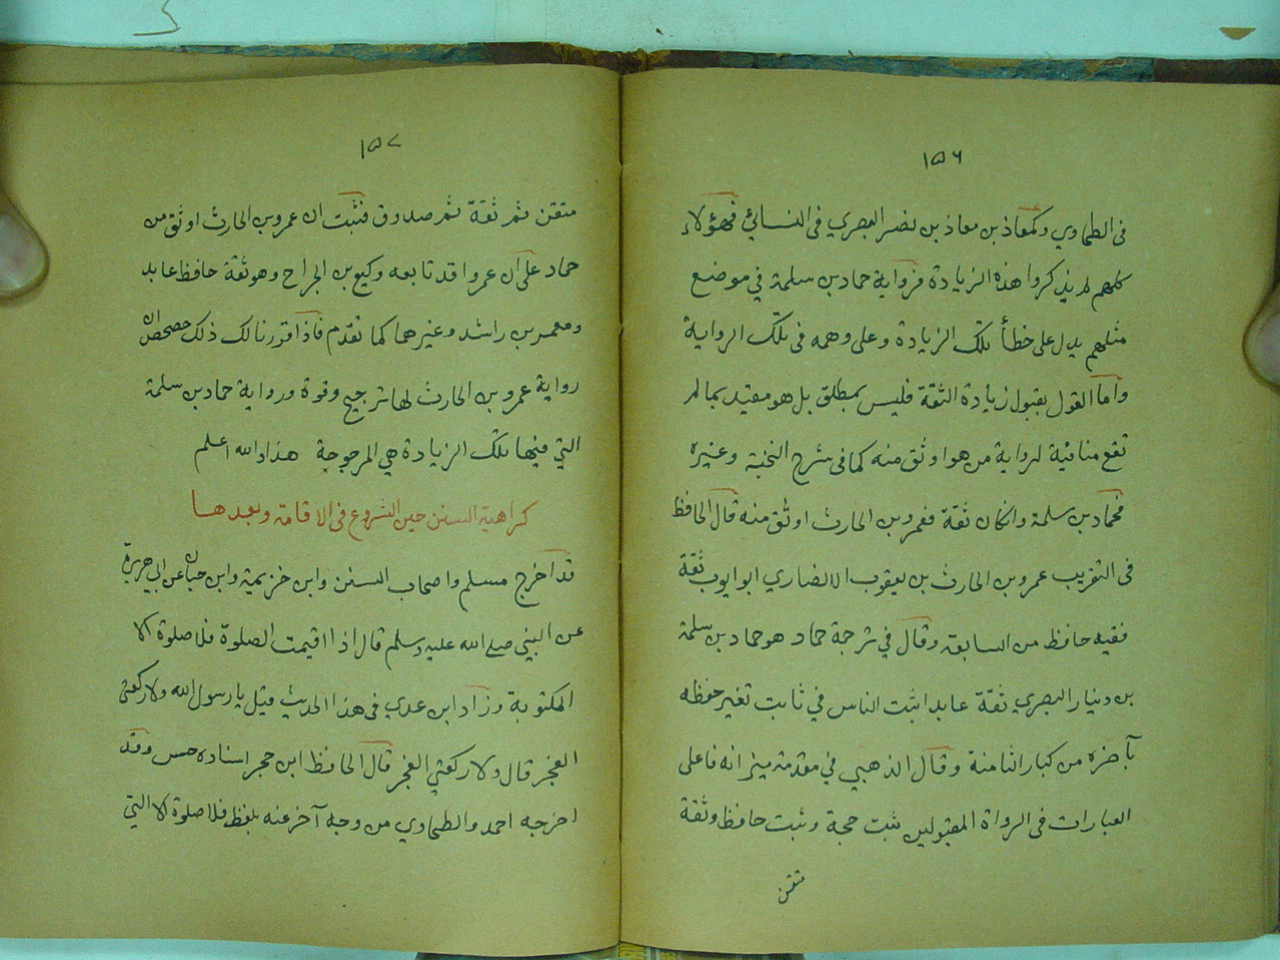 ١٥٦
فى الطحاوي وكمعاذ بن معاذ بن نضر البصري فى النسائي فهؤلاء
كلهم لم يذكروا هذه الزيادة فرواية حماد بن سلمة في موضع
مثلهم يدل على خطأ تلك الزيادة وعلى وهمه فى تلك الرواية
واما القول بقبول زيادة الثقة فليس بمطلق بل هو مقيد بما لم
تقع منافية لرواية من هو اوثق منه كما فى شرح النخبة وغيره
فحماد بن سلمة وانكان ثقة فعمرو بن الحارث اوثق منه قال الحافظ
فى التقريب عمرو بن الحارث بن يعقوب الانصاري ابو ايوب ثقة
فقيه حافظ من السابعة وقال في ترجمة حماد هو حماد بن سلمة
بن دينار البصري ثقة عابد اثبت الناس في ثابت تغير حفظه
بآخره من كبار الثامنة وقال الذهبي في مقدمة ميزانه فاعلى
العبارات فى الرواة المقبولين ثبت حجة وثبت حافظ وثقة
متقن
١٥٧
متقن ثم ثقة ثم صدوق فثبت ان عمرو بن الحارث اوثق من
حماد على ان عمروا قد تابعه وكيع بن الجراح وهو ثقة حافظ عابد
ومعمر بن راشد وغيرهما كما تقدم فاذا قررنا لك ذلك حصحص ان
رواية عمرو بن الحارث لها ترجيح وقوة ورواية حماد بن سلمة
التي فيها تلك الزيادة هي المرجوحة هذا والله اعلم
كراهية السنن حين الشروع فى الاقامة وبعدها
قد اخرج مسلم واصحاب السنن وابن خزيمة وابن حبان عن ابي هريرة
عن النبي صلى الله عليه وسلم قال اذا اقيمت الصلوة فلا صلوة الا
المكتوبة وزاد ابن عدي فى هذا الحديث قيل يا رسول الله ولا ركعتى
الفجر قال ولا ركعتي الفجر قال الحافظ ابن حجر اسناده حسن وقد
اخرجه احمد والطحاوي من وجه آخر عنه بلفظ فلا صلوة الا التي